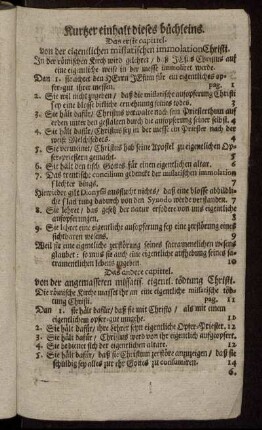 Kurtzer einhalt dieses büchleins.
Das erste capittel.
von der eigentlichen missatischen immolation Christi.
In der römischen Kirch wird gelehret, daß JEsus Christus auf
eine eigentliche weiß in der messe immolirt werde.
Dan 1. sie achtet den HErrn JEsum für ein eigentliches op-
fer-gut ihrer messen, pag. 1
2. Sie wil nicht zugeben, daß die missatische aufopferung Christi
sey eine blosse bittliche erwehnung seines todes. 3
3. Sie hält dafür, Christus verwalte noch sein Priesterthum auf
erden unter den gestalten durch die aufopferung seiner selbst. 4
4. Sie hält dafür, Christus sey in der messe ein Priester nach der
weiß Melchisedecs. 5
5. Sie vermeinet, Christus hab seine Apostel zu eigentlichen Op-
fer-priestern gemacht. 5
6. Sie hält den tisch Gottes für einen eigentlichen altar. 6
7. Das tridentische concilium gedenckt der missatischen immolation
schlechter dings.
Hinwider gilt nichts, daß eine blosse abbildli-
che schlachtung dadurch von den Synodo werde verstanden. 7
8. Sie lehret, daß gesetz der natur erfordere von uns eigentliche
aufopferungen. 8
9. Sie lehret eine eigentliche aufopferung sey eine zerstörung eines
sichtbaren wesens. 9
Weil sie eine eigentliche zerstörung seines sacramentlichen wesens
glaubet: so muß sie auch eine eigentliche aufhebung seines sa-
cramentlichen lebens zugeben. 10
Das andere capittel.
von der angemasseten missatis. eigentl. tödtung Christi.
Die römische Kirche masset ihr an eine eigentliche missatische töd-
tung Christi. pag. 11
Dan 1. sie hält dafür, daß sie mit Christo, als mit einem
eigentlichem opfer-gut umgehe. 11
2. Sie hält dafür, ihre lehrer seyn eigentliche Opfer-Priester. 12
3. Sie hält dafür, Christus werd von ihr eigentlich aufgeopfert.
4. Sie bedienet sich der eigentlichen altäre. 12
5. Sie hält dafür, daß sie Christum zerstöre anzuzeigen, daß sie
schuldig sey alles zur ehr Gottes zu consumiren. 14
6.